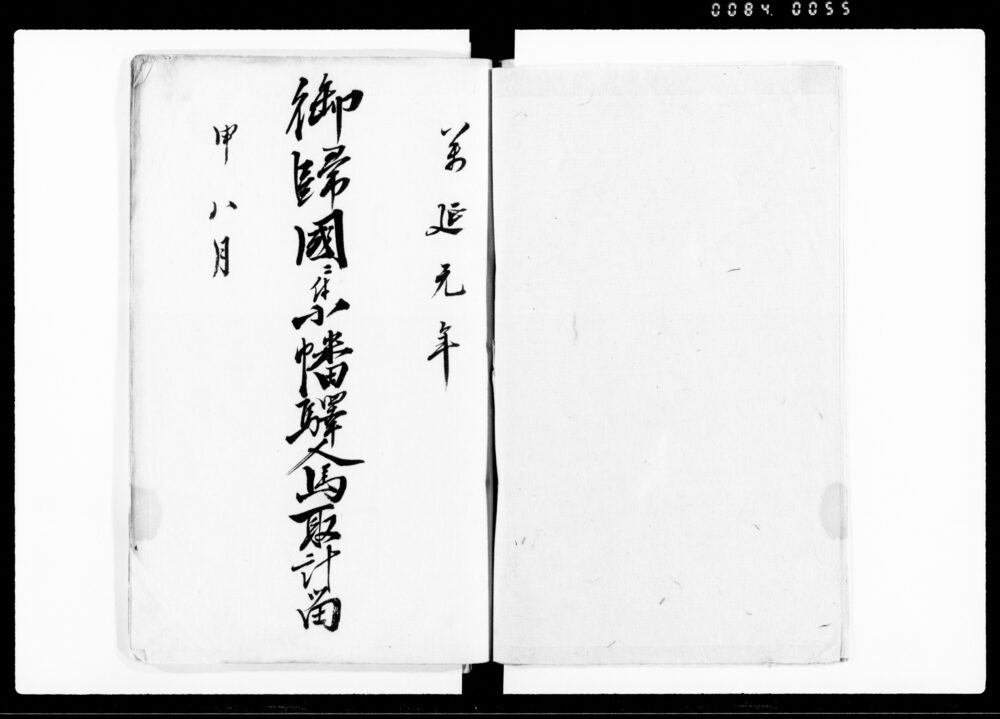 0084. 0055
萬延元年
御歸國ニ付小幡驛人馬取計留
申八月